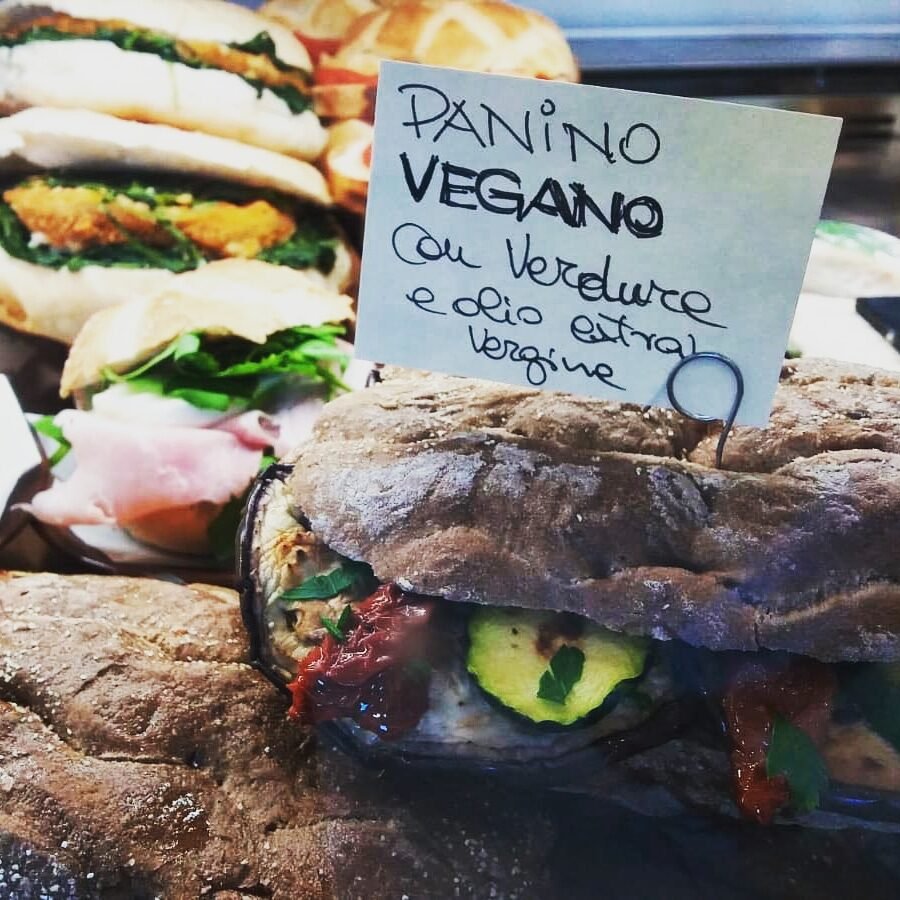 PANiNO
VEGANO
con Verdure
e olio extra
Vergine